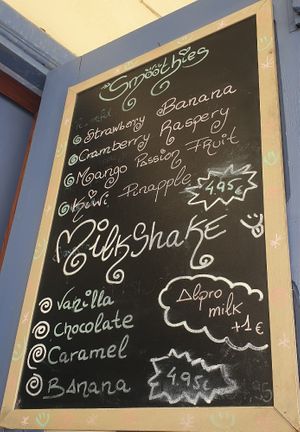 Smoothies
Strawberry Banana
Cramberry Raspery
Mango Passion Fruit
Kiwi Pinapple
4,95€
MilkShake
Vanilla
Chocolate
Caramel
Banana
Alpro
milk
+1€
4.95€